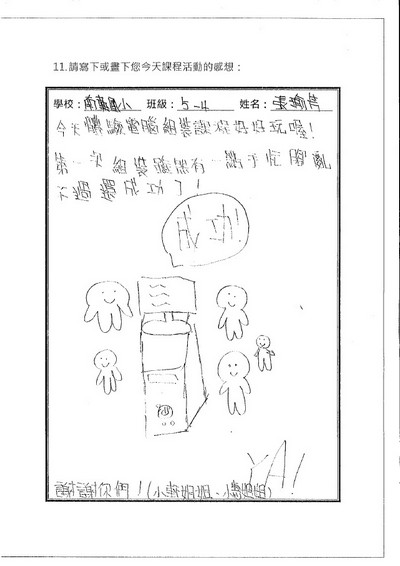 11.請寫下或畫下您今天課程活動的感想：
學校： 班級：5-4 姓名：張瑜芳
今天 電腦組裝 好好玩喔！
第一次組裝雖然有一點手忙腳亂
不過還成功了！
成功！
YA!
謝謝你們！(小軒姐姐、小 姐姐)